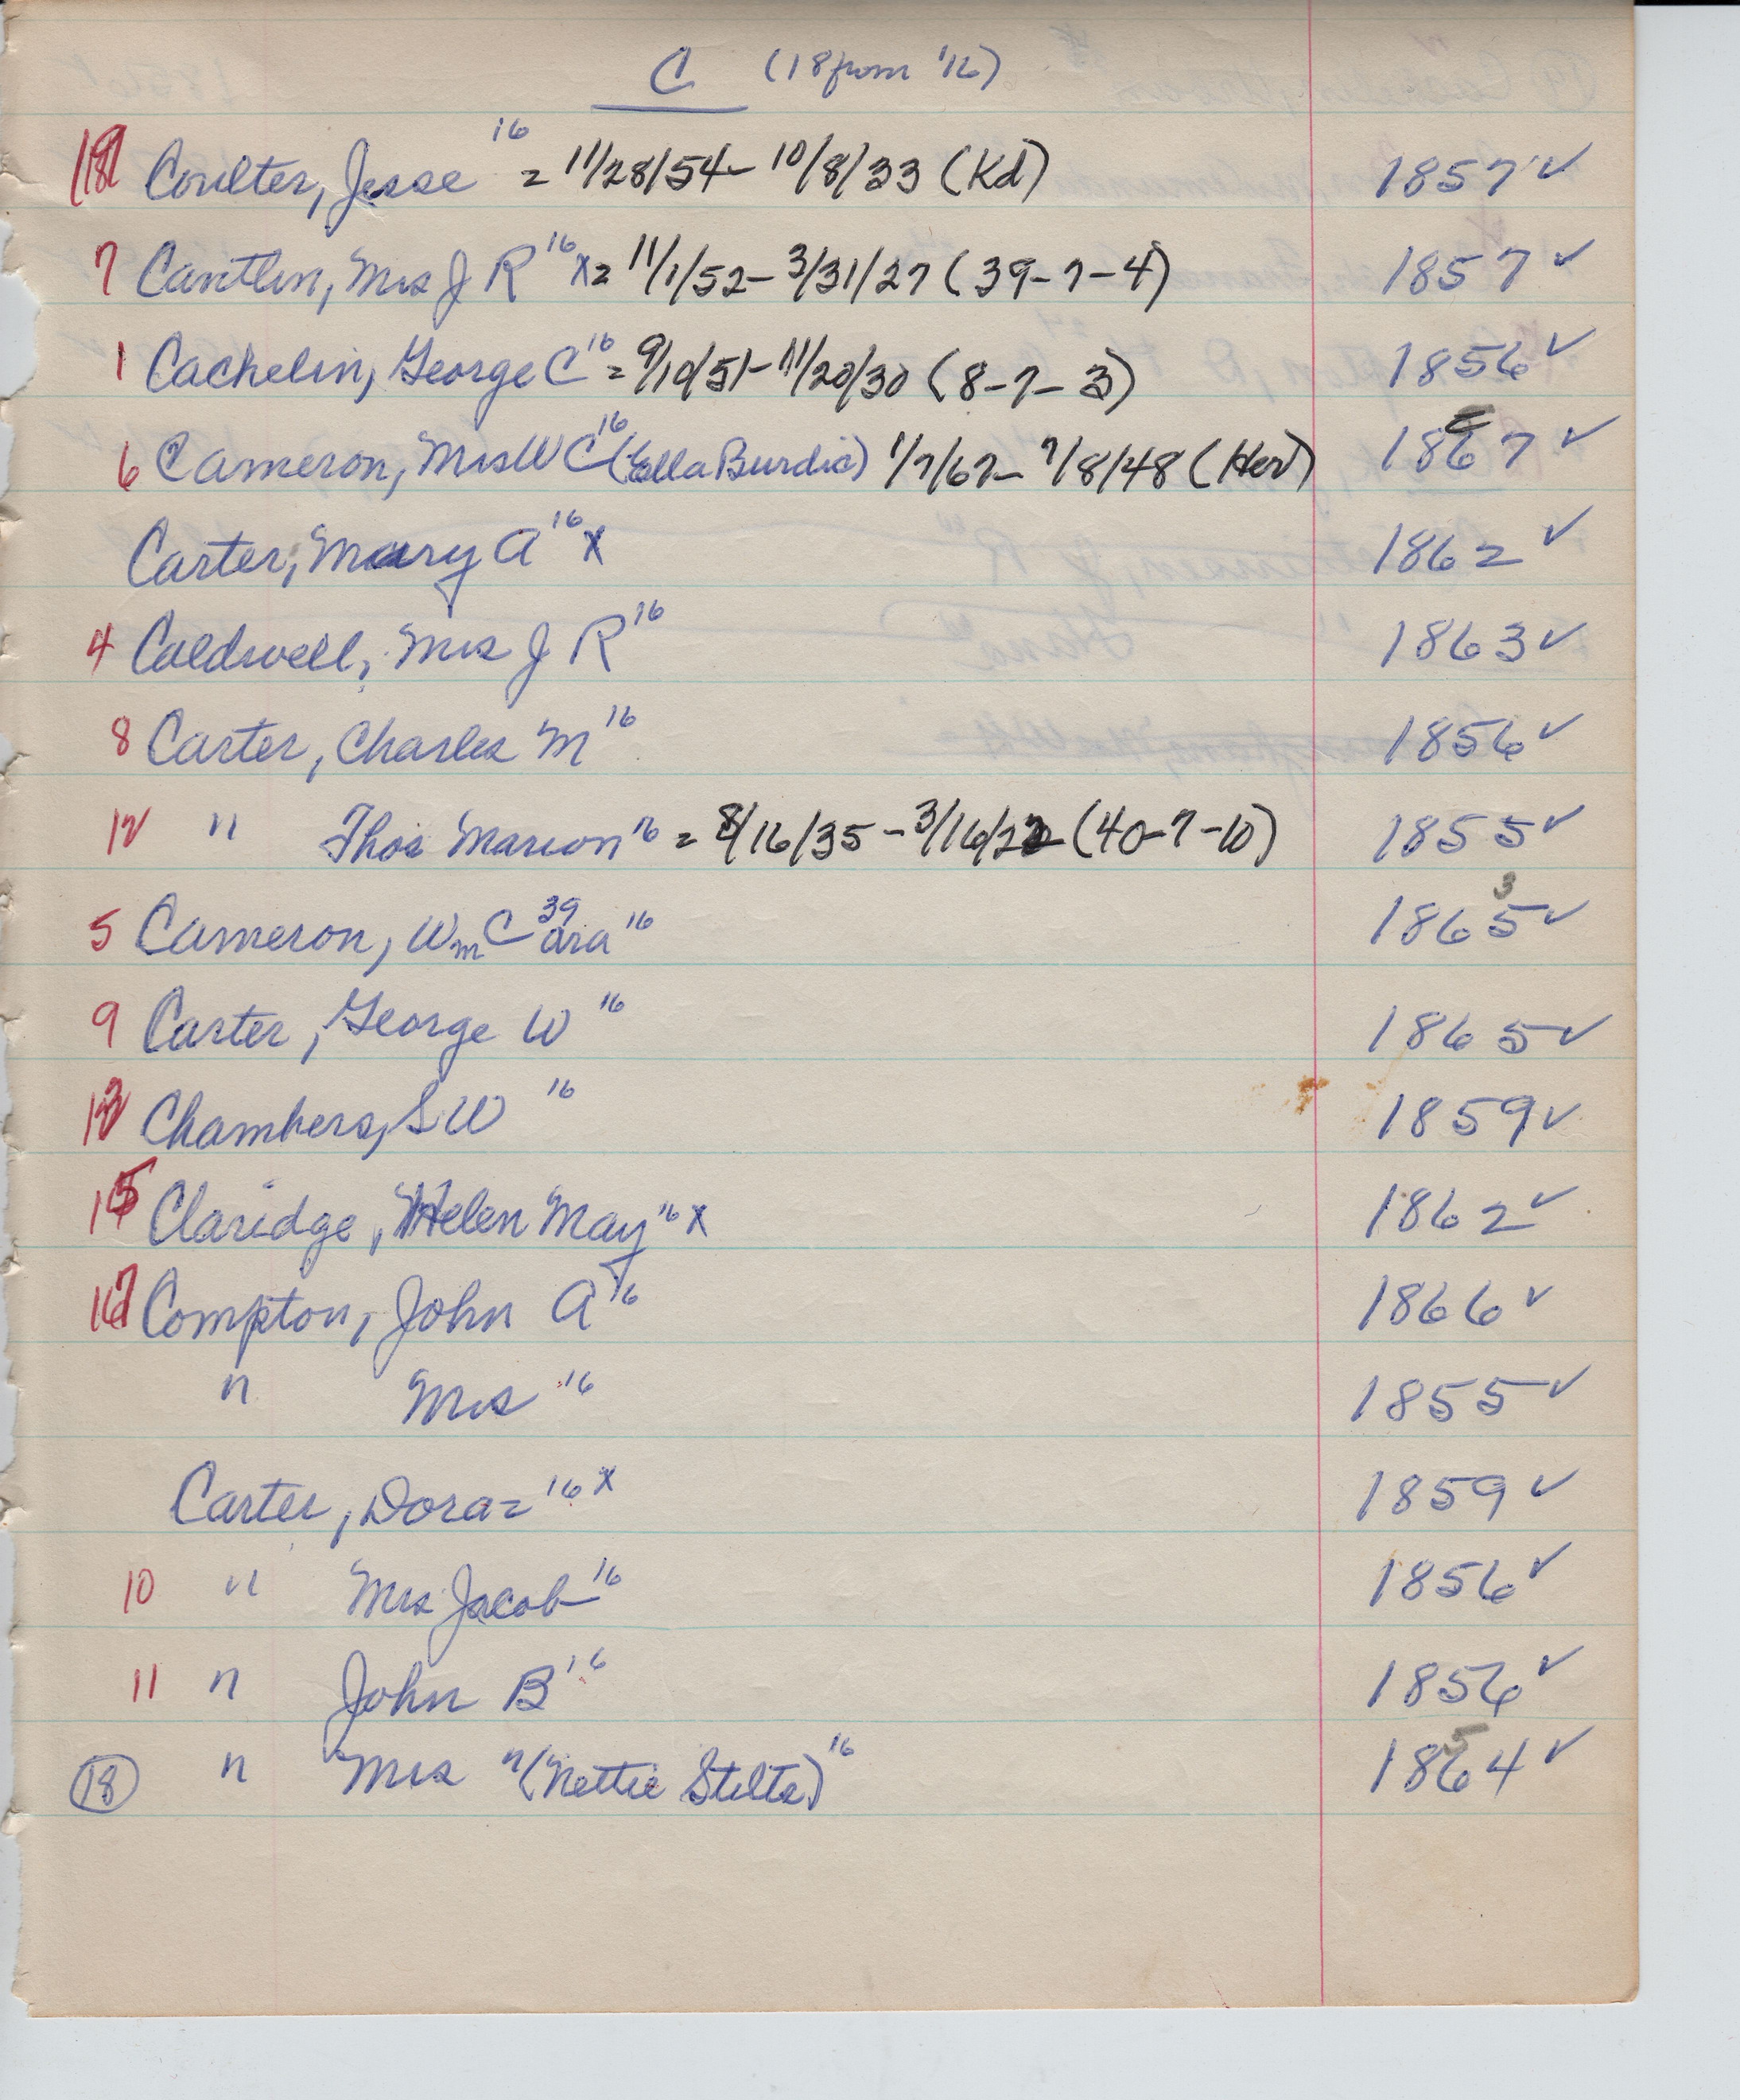 C (18 from '16)
18 Coulter, Jesse 16 = 11/28/54 - 10/8/33 (Kd) 1857 ✓
7 Cantlin, Mrs J R 16 x = 11/1/52 - 3/31/27 (39-7-4) 1857 ✓
1 Cachelin, George C 16 = 9/10/51 - 11/20/30 (8-7-3) 1856 ✓
6 Cameron, Mrs W C 16 (Ella Burdic) 1/7/67 - 7/8/48 (Her) 1867 ✓
Carter, Mary A 16 x 1862 ✓
4 Caldwell, Mrs J R 16 1863 ✓
8 Carter, Charles M 16 1856 ✓
12 " Thos Marion 16 = 8/16/35 - 3/16/22 (40-7-10) 1855 ✓
5 Cameron, Wm C 39 ara 16 1865 3 ✓
9 Carter, George W 16 1865 ✓
13 Chambers, S W 16 1859 ✓
15 Claridge, Helen May 16 x 1862 ✓
17 Compton, John A 16 1866 ✓
" Mrs 16 1855 ✓
Carter, Dora = 16 x 1859 ✓
10 " Mrs Jacob 16 1856 ✓
11 " John B 16 1856 ✓
18 " Mrs " (Nettie Stilts) 16 1864 5 ✓